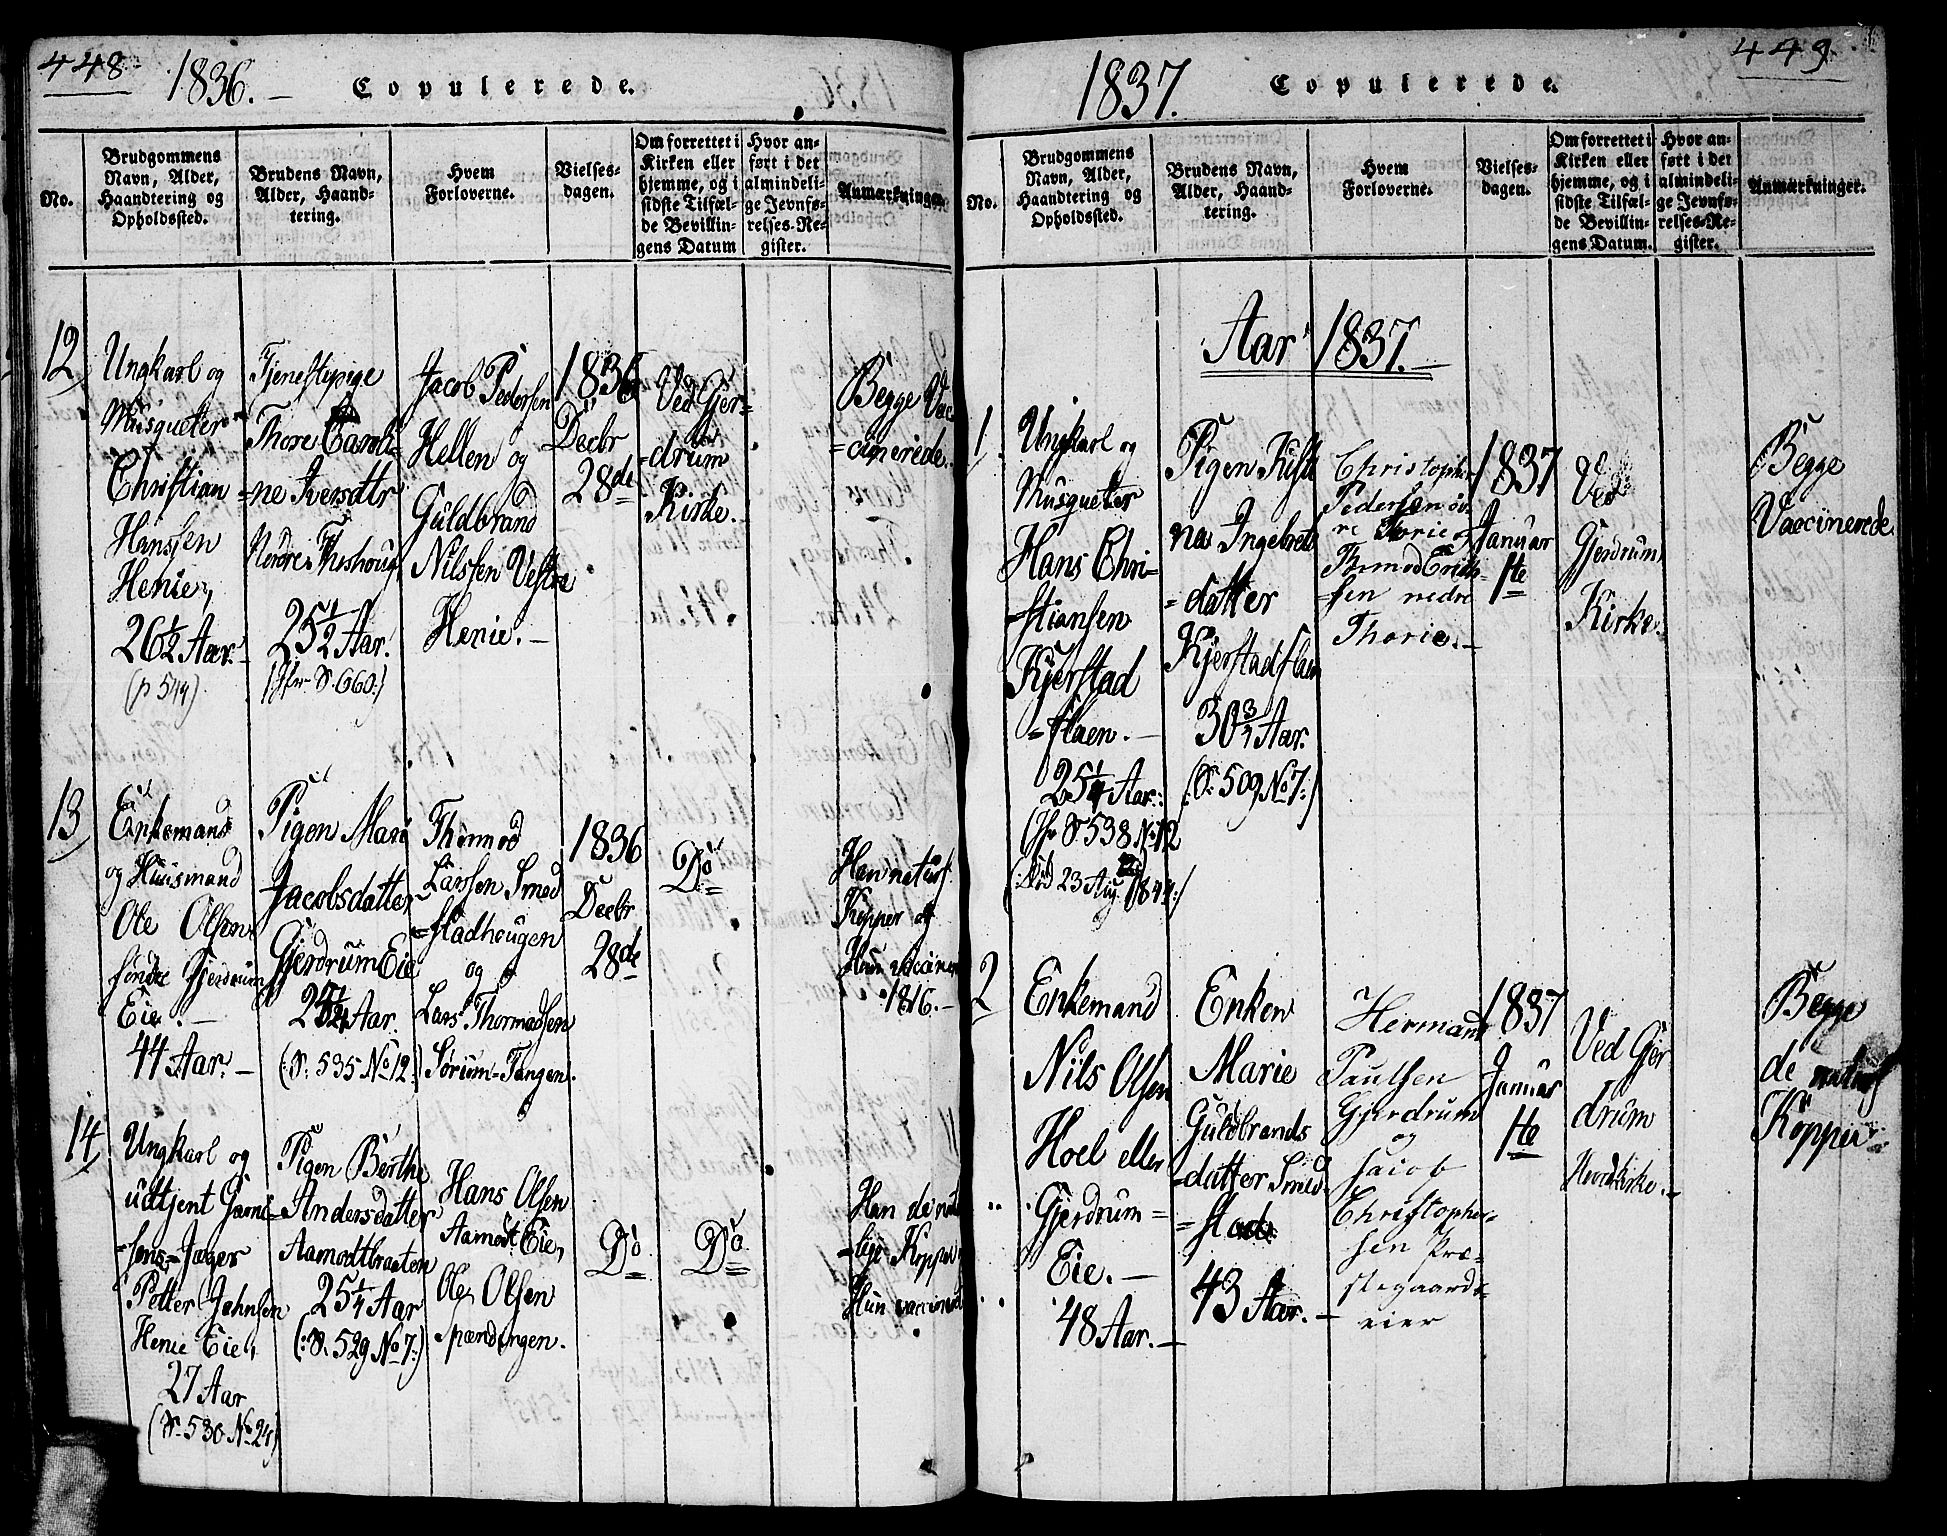 448
1836.
Copulerede.
No.
Brudgommens
Navn, Alder,
Haandtering og
Opholdssted.
Brudens Navn,
Alder, Haand-
tering.
Hvem
Forloverne.
Vielses-
dagen.
Om forrettet i
Kirken eller
hjemme, og i
sidste Tilfæl-
de Bevillin-
gens Datum
Hvor an-
ført i det
almindeli-
ge Jevnfø-
relses-Re-
gister.
Anmærkninger.
12)
Ungkarl og
Musqueter
Christian
Hanssen
Henie,
26½ Aar.
(p 544)
Tjenestepige
Thore Caroli-
=ne Iversdtr
Nordre
25½ Aar.
(Jfr. S. 660:)
Jacob Pedersen
Hellen og
Guldbrand
Nilssen Vestre
Henie. –
1836
Decbr
28de
Ved Gjer-
=drum
Kirke.
Begge Vac
=cinerede.
13)
Enkemand
og Huusmand
Ole Olsen
søndre Gjerdrum
Eie. –
44 Aar. –
Pigen Mari
Jacobsdatter
Gjerdrum Eie
Aar.
(S. 535 No 12.)
Thormod
Larssen Smed
=stadhougen
og
Lars Thormodsen
Sørum-Tangen.
1836
Decbr
28de
Do
Han naturl.
Kopper og
Hun vaccineret
1816. –
14)
Ungkarl og
udtjent Garni-
=sons-Jæger
Petter Johnsen
Henie Eie,
27 Aar
(S. 530 No 24)
Pigen Berthe
Andersdatter
Aamodtbraaten
25¼ Aar
(:S. 529 No 7:)
Hans Olsen
Aamodt Eie,
Ole Olsen
Spændingen.
Do
Do
Han de natur
=lige Kopper
Hun vaccineret
449.
1837.
Copulerede.
No.
Brudgommens
Navn, Alder,
Haandtering og
Opholdssted.
Brudens Navn,
Alder, Haand-
tering.
Hvem
Forloverne.
Vielses-
dagen.
Om forrettet i
Kirken eller
hjemme, og i
sidste Tilfæl-
de Bevillin-
gens Datum.
Hvor an-
ført i det
almindeli-
ge Jevnfø-
relses-Re-
gister.
Anmærkninger.
Aar 1837. –
1.
Ungkarl og
Musqueter
Hans Chri-
=stiansen
Kjerstad
=flaen. –
25¼ Aar.
(Jfr S. 538 No 12
(:Død 23 Aug 1844:)
Pigen
na Ingebrets
=datter
Kjerstadflaen
30¾ Aar.
(:S. 509 No 7:)
Christopher
Pedersen øv
re Thorie og
Thormod Erik
=sen nedre
Thorie. –
1837
Januar
1te
Ved
Gjerdrum
Kirke.
Begge
Vaccinerede
2
Enkemand
Nils Olsen
Hoel eller
Gjerdrum=
Eie. –
48 Aar. –
Enken
Marie
Guldbrands
=datter Smed
=stad
43 Aar. –
Hermand
Paulsen
Gjerdrum
og
Jacob
Christopher-
sen Præ-
stegaards-
eier
1837
Januar
1te
Ved Gjer
drum
Hovedkirke. –
Begge
de naturl
Kopper